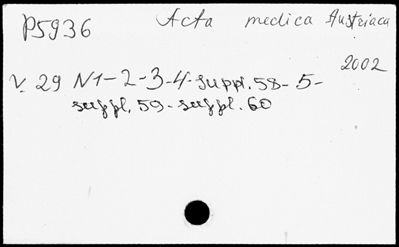 P5936 Acta medica Austriaca
2002
V. 29 N1-2-3-4-suppl. 58-5-
suppl. 59-suppl. 60